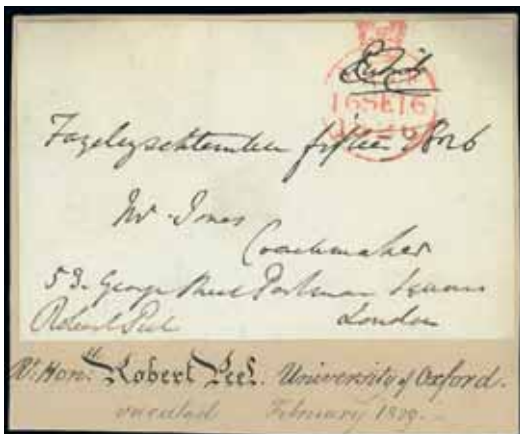 16SE16
1826
Fazeley september fifteen 1826
Mr Jones
Coachmaker
53. George Street Portman Square
London
Robert Peel
Rt. Hon. Robert Peel. University of Oxford.
vacated February 1829.